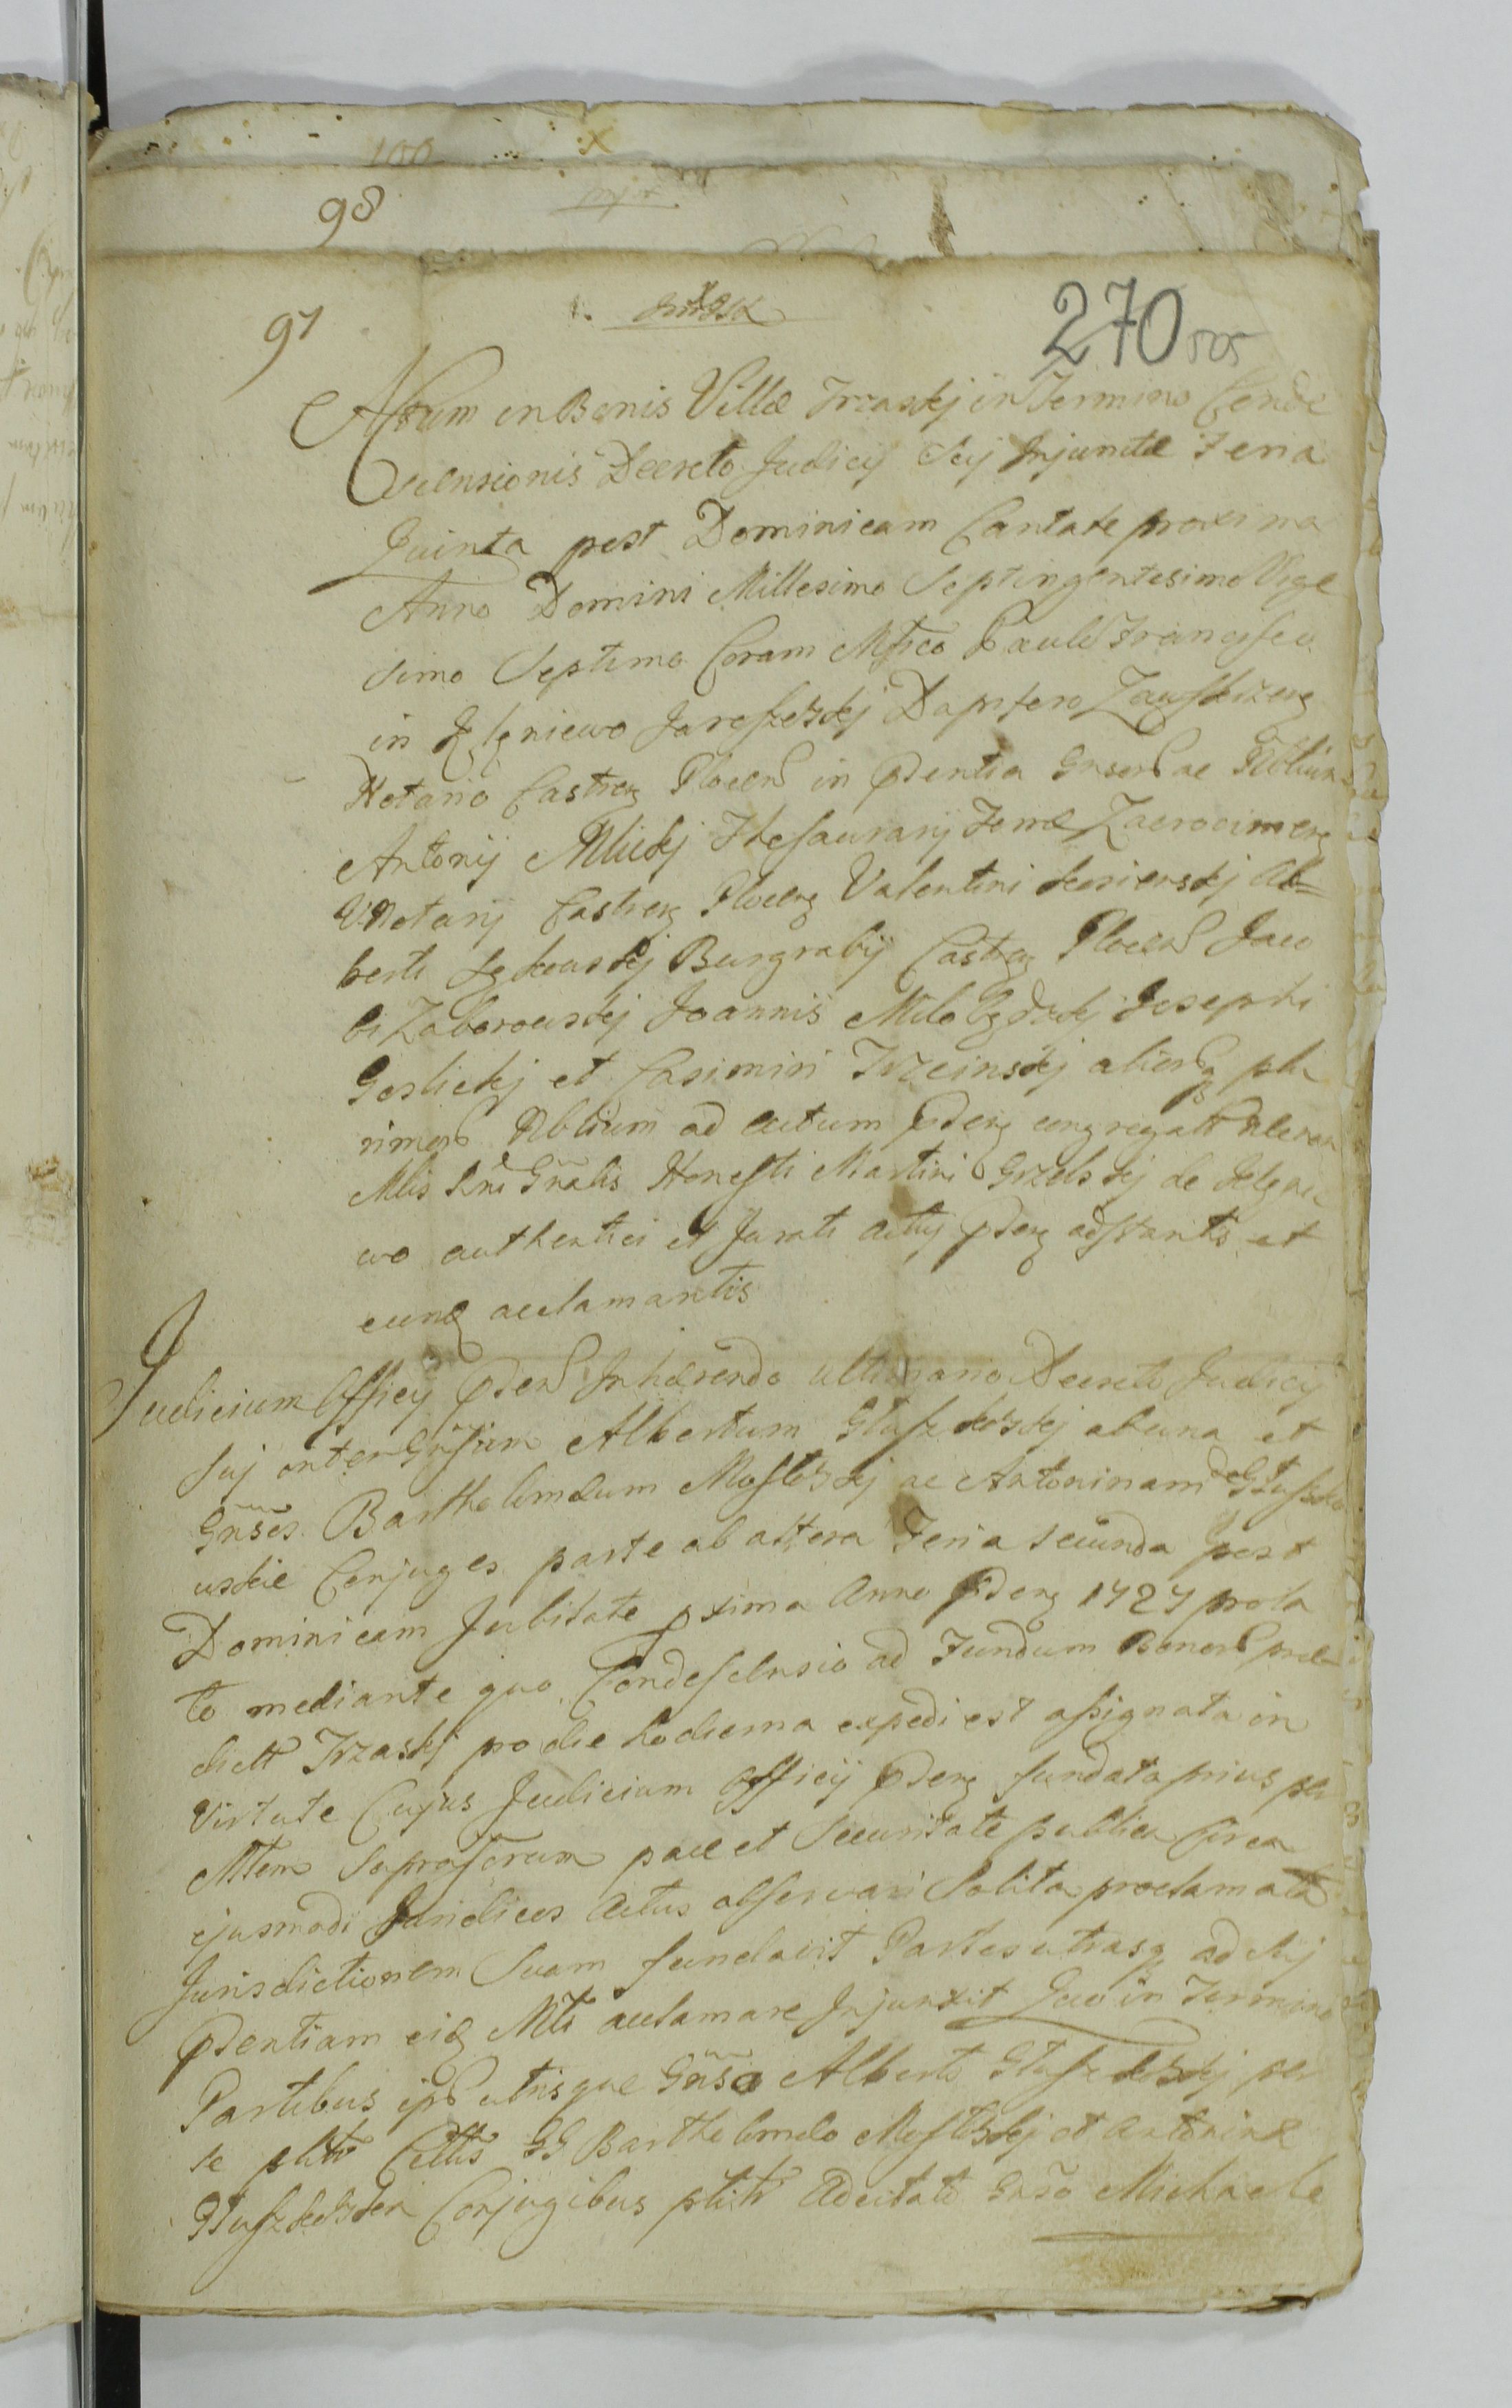 100 X
98
97
270 505
Actum in Bonis Villæ Trzaskj in Termino Conde
scensionis Decreto Judicij Sui Injunctæ Feria
Quinta post Dominicam Cantate proxima
Anno Domini Millesimo Septingentesimo Vige
simo Septimo Coram Mfico Paulo Francisco
in Jaroszewskj Dapifero Zawskrzeng
Notario Castreng Plocen in Pdentia Gnser ac Nblium
Antonij Mlickj Thesaurarij Terræ Zacrocimeng
V. Notarij Castreng Ploceng Valentini Al=
berti Burgrabij Castreng Plocen Jaco
bi Zaborowskj Joannis Milobędzkj Josephi
Goslickj et Casimiri Trzcinskj aliorq plu
rimor Nblium ad actum Pdeng congregatt necnon
Mlis Rni Gnralis Honesti Martini Grzelskj de
wo authentici et Jurati actuj Pdeng adstantis et
eunq acclamantis
Judicium Officij Pden Inhærendo ultimario Decreto Judicij
suj inter Gnsum Albertum Głuszkowskj ab una et
Gnses Bartholomæum Mostowskj ac Antoninam de Głuszko
wskie Conjuges parte ab altera Feria secunda post
Dominicam Jubilate pxima Anno Pdeng 1727 prola
to mediante quo Condescensio ad Fundum Bonor præ
dictt Trzaskj pro die hodierna expedi est assignata in
Virtute Cujus Judicium Officij Pdeng fundata prius per
Mltem Suprascriptum pace et Securitate publica Circa
ejusmodi Juridicos Actus observari Solita proclamata
Jurisdictionem Suam fundavit Partes utrasq ad sui
Pdentiam eidq Mlti acclamare Injunxit Quo in Termino
Partibus ip utrisque Gnso Alberto Głuszkowskj per
se plitr Cittis GG Bartholomæo Mostowskj et Antonina
Głuszkowska Conjugibus plitr Adcitato Gnso Michaele